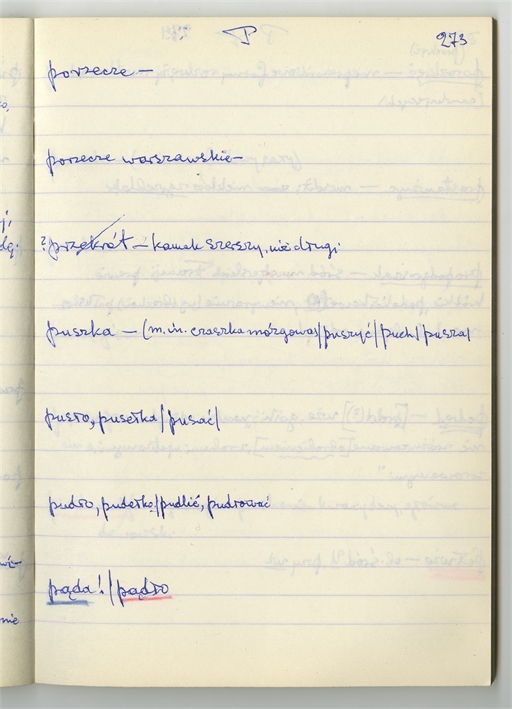 P
273
porzecze —
porzecze warszawskie —
? przekrát — kamek szerszy, niż drugi
puszka — (m. in. czaszka mózgowa) / puszyć / puch / pusza /
pusło, pusełka / pusać /
pudło, pudełko / pudlić, pudłować
pąda! / pądło